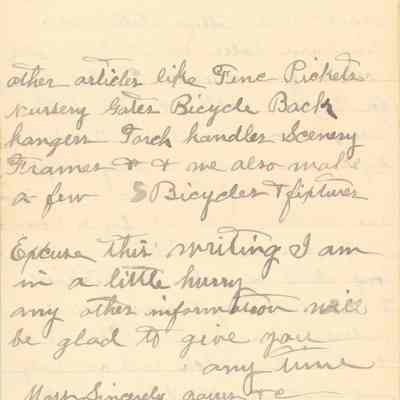 other articles like Finc Pickets
Nursery Gates Bicycle Back
hangers Torch handles Scenery
Frames & & we also make
a few Bicycles & fixtures
Excuse this writing I am
in a little hurry
any other information will
be glad to give you
any time
Most Sincerely yours